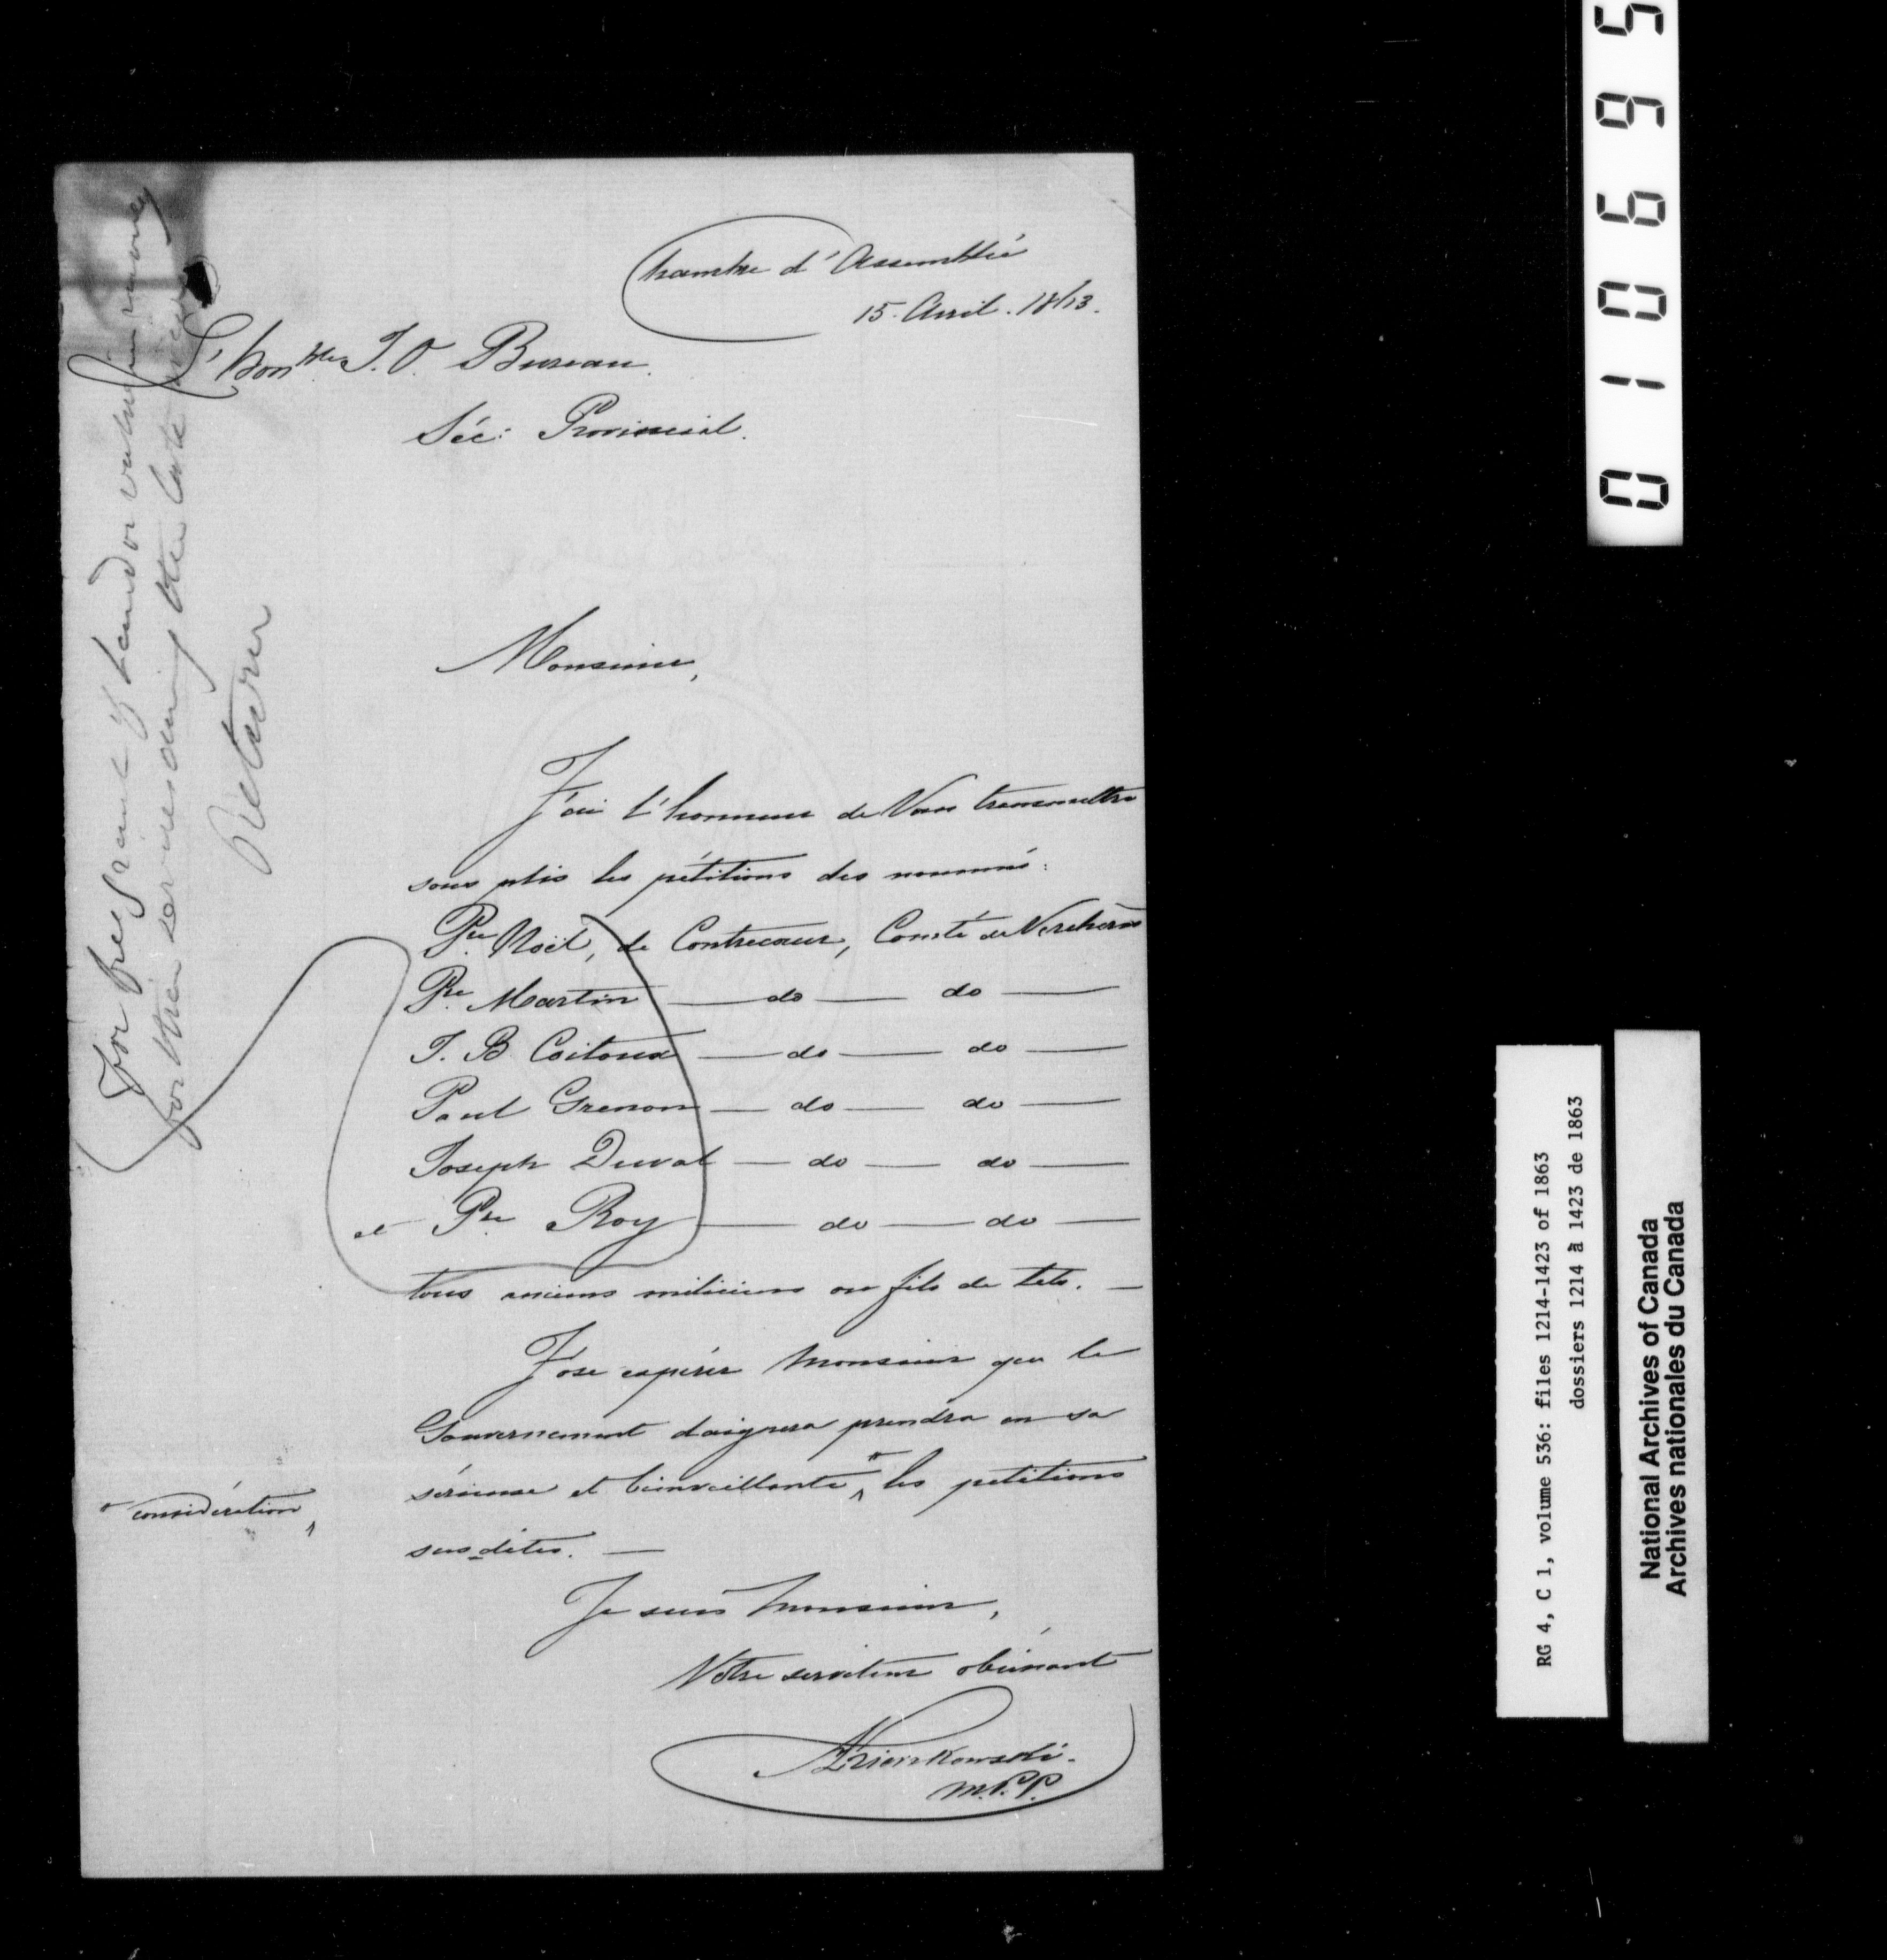 Chambre d'Assemblée
15. Avril. 1863.
L'honble J. O. Bureau.
Séc: Provincial.
Monsieur,
J'ai l'honneur de Vous transmettre
sous plis les pétitions des nommés:
Pre Noël, de Contrecoeur, Comté de Verchères
Pre Martin — do — do —
J. B Coitoux — do — do —
Paul Grenon — do — do —
Joseph Duval — do — do —
et Pre Roy — do — do —
tous anciens miliciens ou fils de tels. —
J'ose espérer Monsieur que le
Gouvernement daignera prendre en sa
sérieuse et bienveillante les petitions
considération
sus-dites. —
Je suis Monsieur,
Votre serviteur obéissant
AKierzkowski.
M.P.P.
For free grant of land or
for their services during the late
Return
0 1 0 6 9 5
RG 4, C 1, volume 536: files 1214-1423 of 1863
dossiers 1214 à 1423 de 1863
National Archives of Canada
Archives nationales du Canada